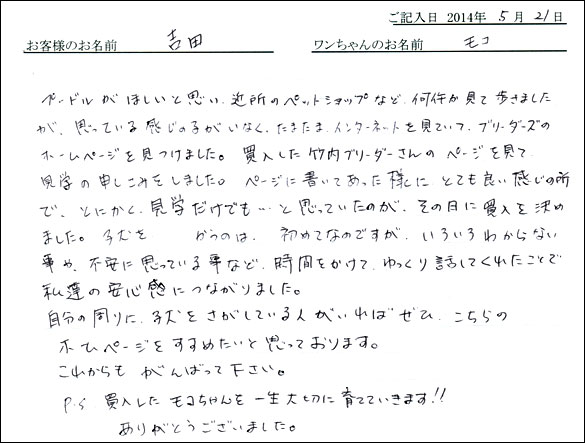 ご記入日 2014年 5月 21日
お客様のお名前 吉田 ワンちゃんのお名前 モコ
プードルがほしいと思い、近所のペットショップなど、何件か見て歩きました
が、思っている感じの子がいなく、たまたま、インターネットを見ていて、ブリーダーズの
ホームページを見つけました。買入した竹内ブリーダーさんのページを見て、
見学の申しこみをしました。ページに書いてあった様にとても良い感じの所
で、とにかく、見学だけでも…と思っていたのが、その日に買入を決め
ました。子犬を かうのは、初めてなのですが、いろいろわからない
事や、不安に思っている事など、時間をかけて、ゆっくり話してくれたことで
私達の安心感につながりました。
自分の周りに、子犬をさがしている人がいればぜひ、こちらの
ホムページをすすめたいと思っております。
これからも がんばって下さい。
P.S 買入したモコちゃんを一生大切に育てていきます!!
ありがとうございました。